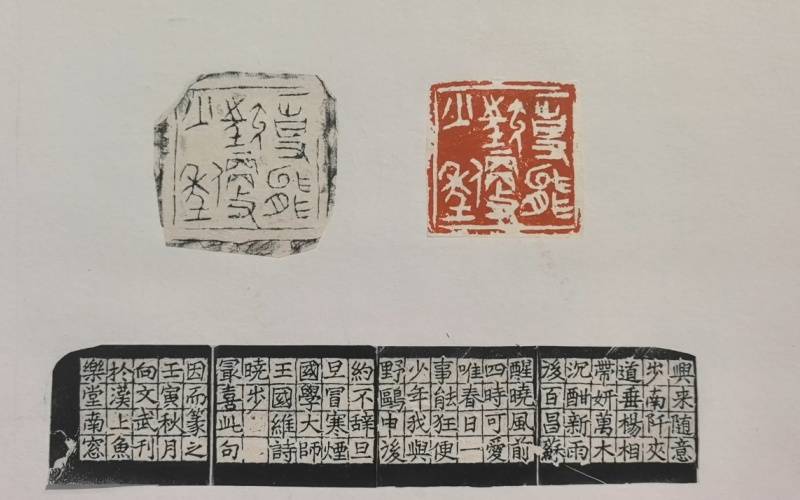 一事能
狂便
少年
一事能
狂便
少年
興来随意
步南阡夾
道垂楊相
帶妍萬木
沉酣新雨
後百昌蘇
醒曉風前
四時可愛
唯春日一
事能狂便
少年我與
野鷗申後
約不辭旦
旦冒寒煙
國學大師
王國維詩
曉步
冣喜此句
因而篆之
壬寅秋月
向文武刊
扵漢上魚
樂堂南窓